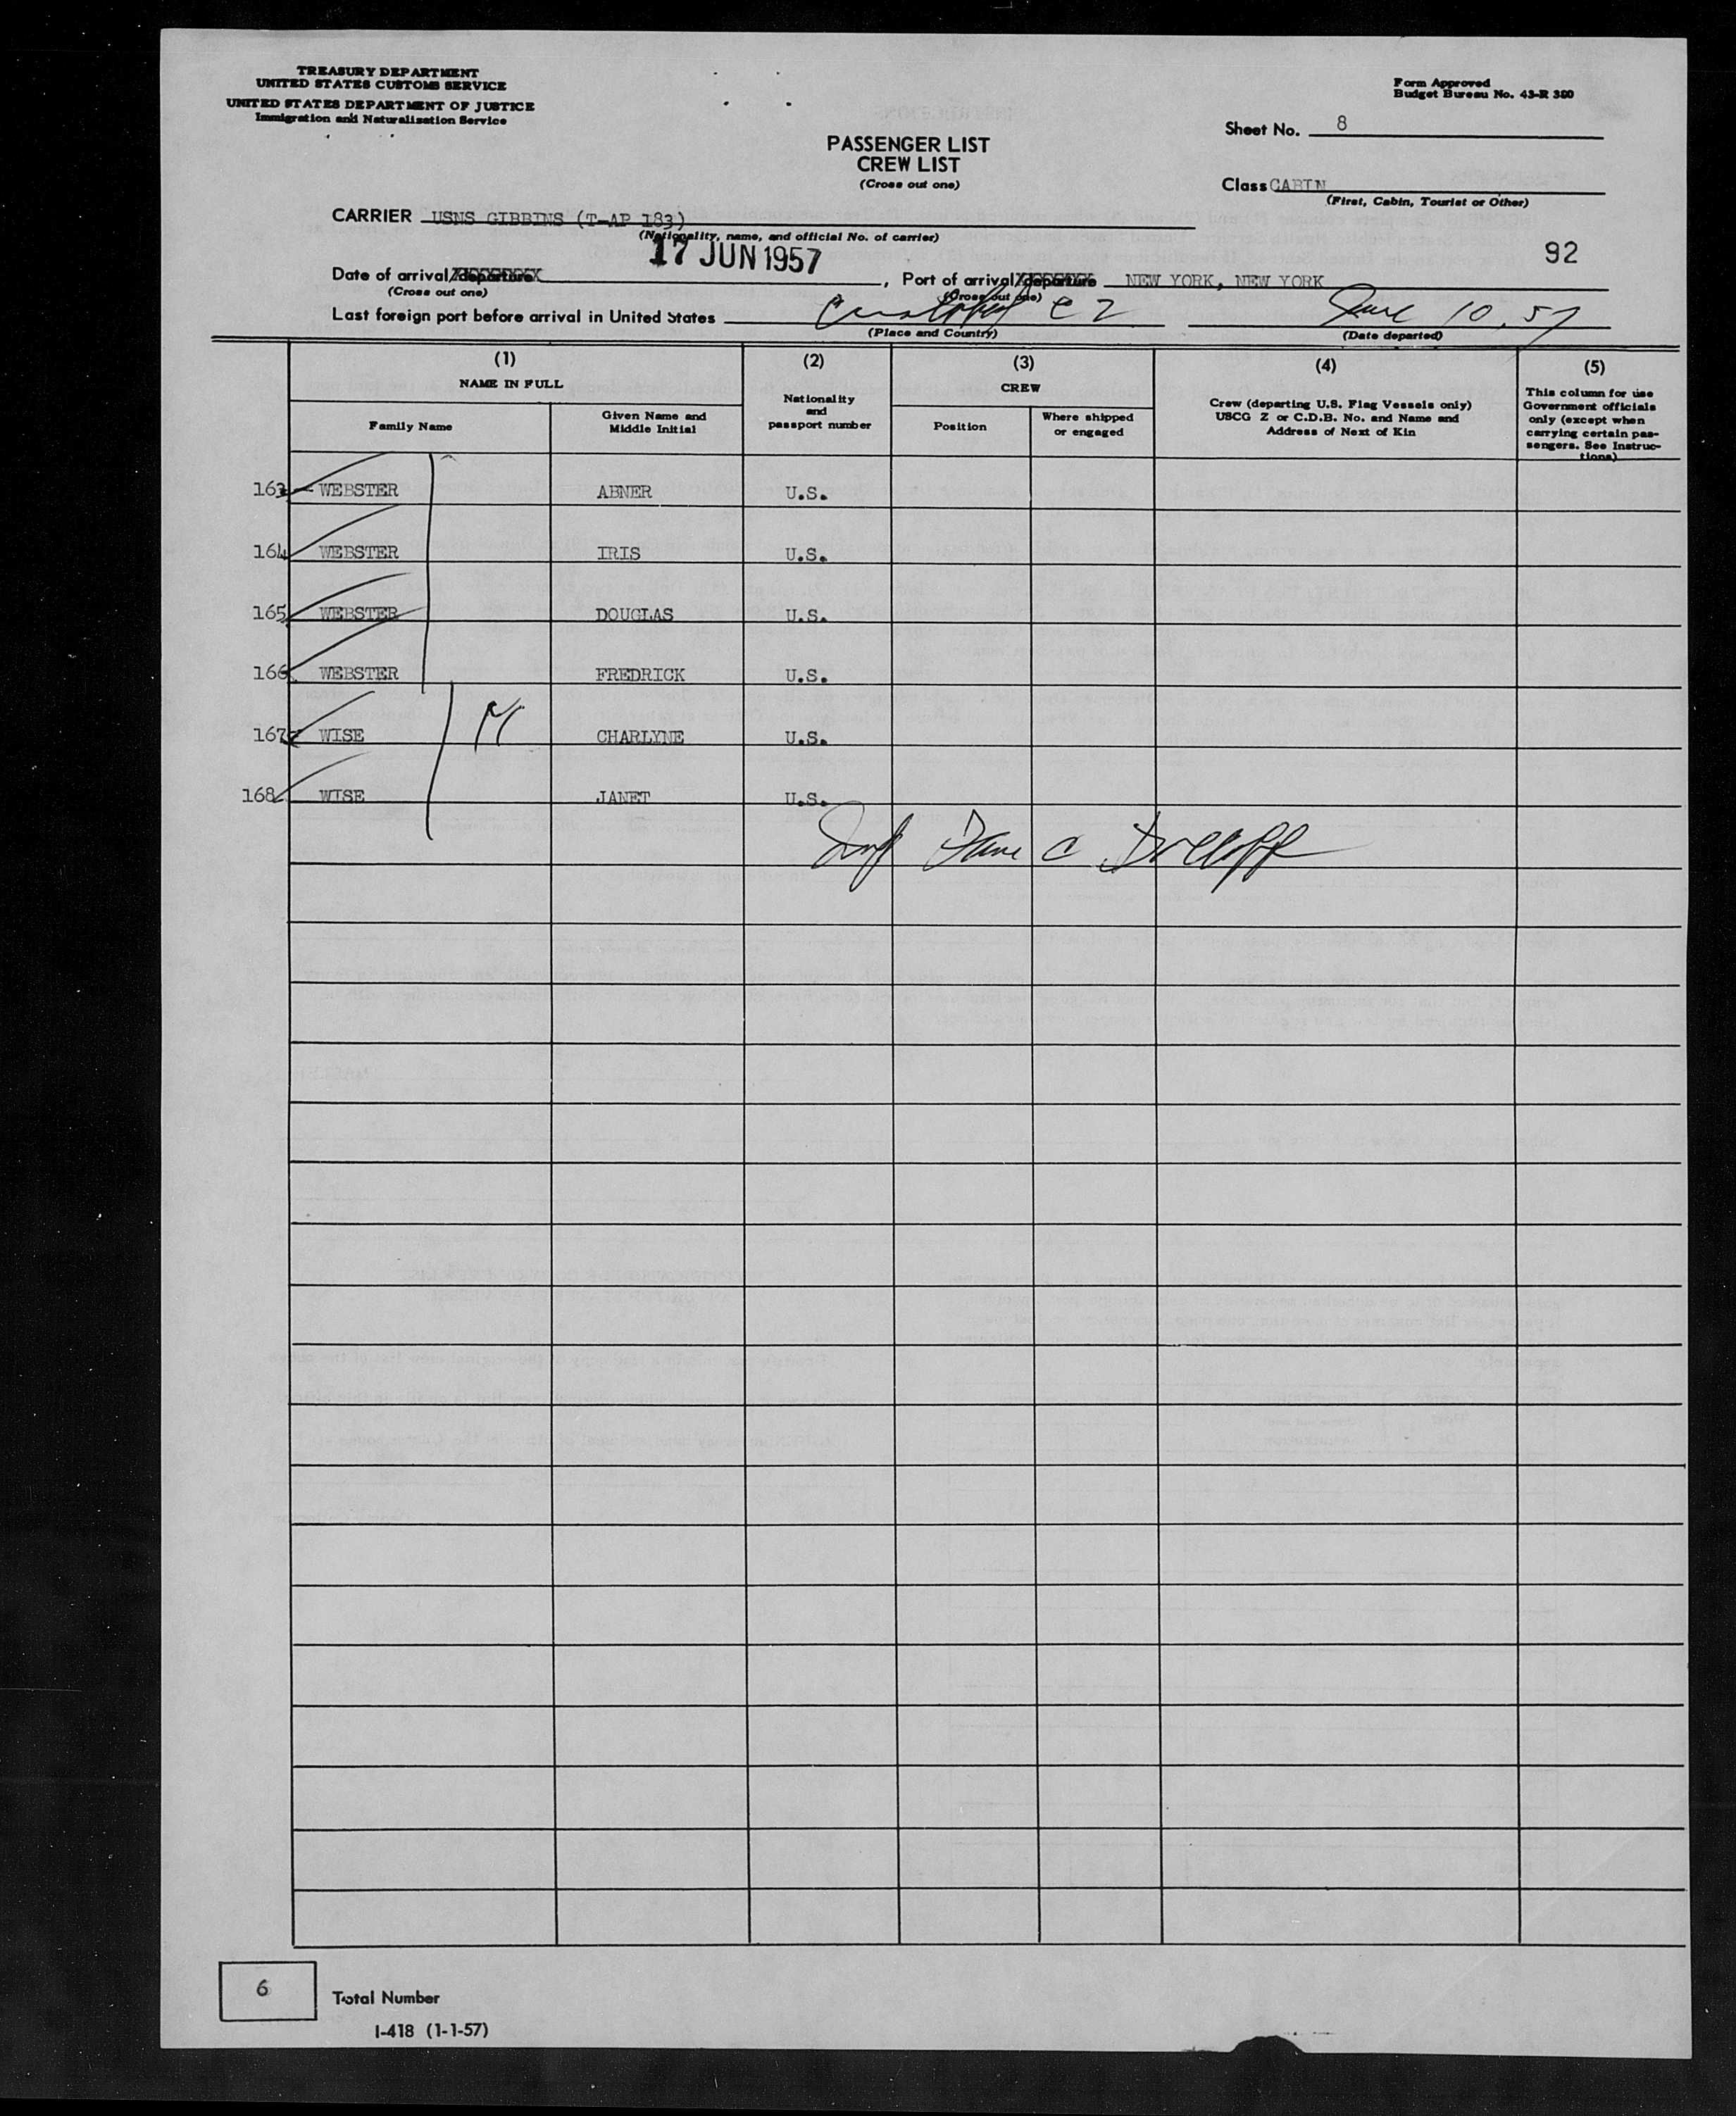 TREASURY DEPARTMENT
UNITED STATES CUSTOMS SERVICE
UNITED STATES DEPARTMENT OF JUSTICE
Immigration and Naturalization Service
Form Approved
Budget Bureau No. 43-R 380
Sheet No. 8
PASSENGER LIST
CREW LIST
(Cross out one)
Class CABIN
(First, Cabin, Tourist or Other)
CARRIER USNS GIBBINS (T-AP 183)
(Nationality, name, and official No. of carrier)
17 JUN 1957
92
Date of arrival/departure , Port of arrival/departure NEW YORK, NEW YORK
(Cross out one) (Cross out one)
Last foreign port before arrival in United States Cristobal C Z June 10, 57
(Place and Country) (Date departed)
(1) (2) (3) (4) (5)
NAME IN FULL
Family Name
Given Name and
Middle Initial
Nationality
and
passport number
CREW
Position
Where shipped
or engaged
Crew (departing U.S. Flag Vessels only)
USCG Z or C.D.B. No. and Name and
Address of Next of Kin
This column for use
Government officials
only (except when
carrying certain pas-
sengers. See Instruc-
tions)
163 WEBSTER ABNER U.S.
164 WEBSTER IRIS U.S.
165 WEBSTER DOUGLAS U.S.
166 WEBSTER FREDRICK U.S.
167 WISE CHARLYNE U.S.
168 WISE JANET U.S.
6
Total Number
I-418 (1-1-57)